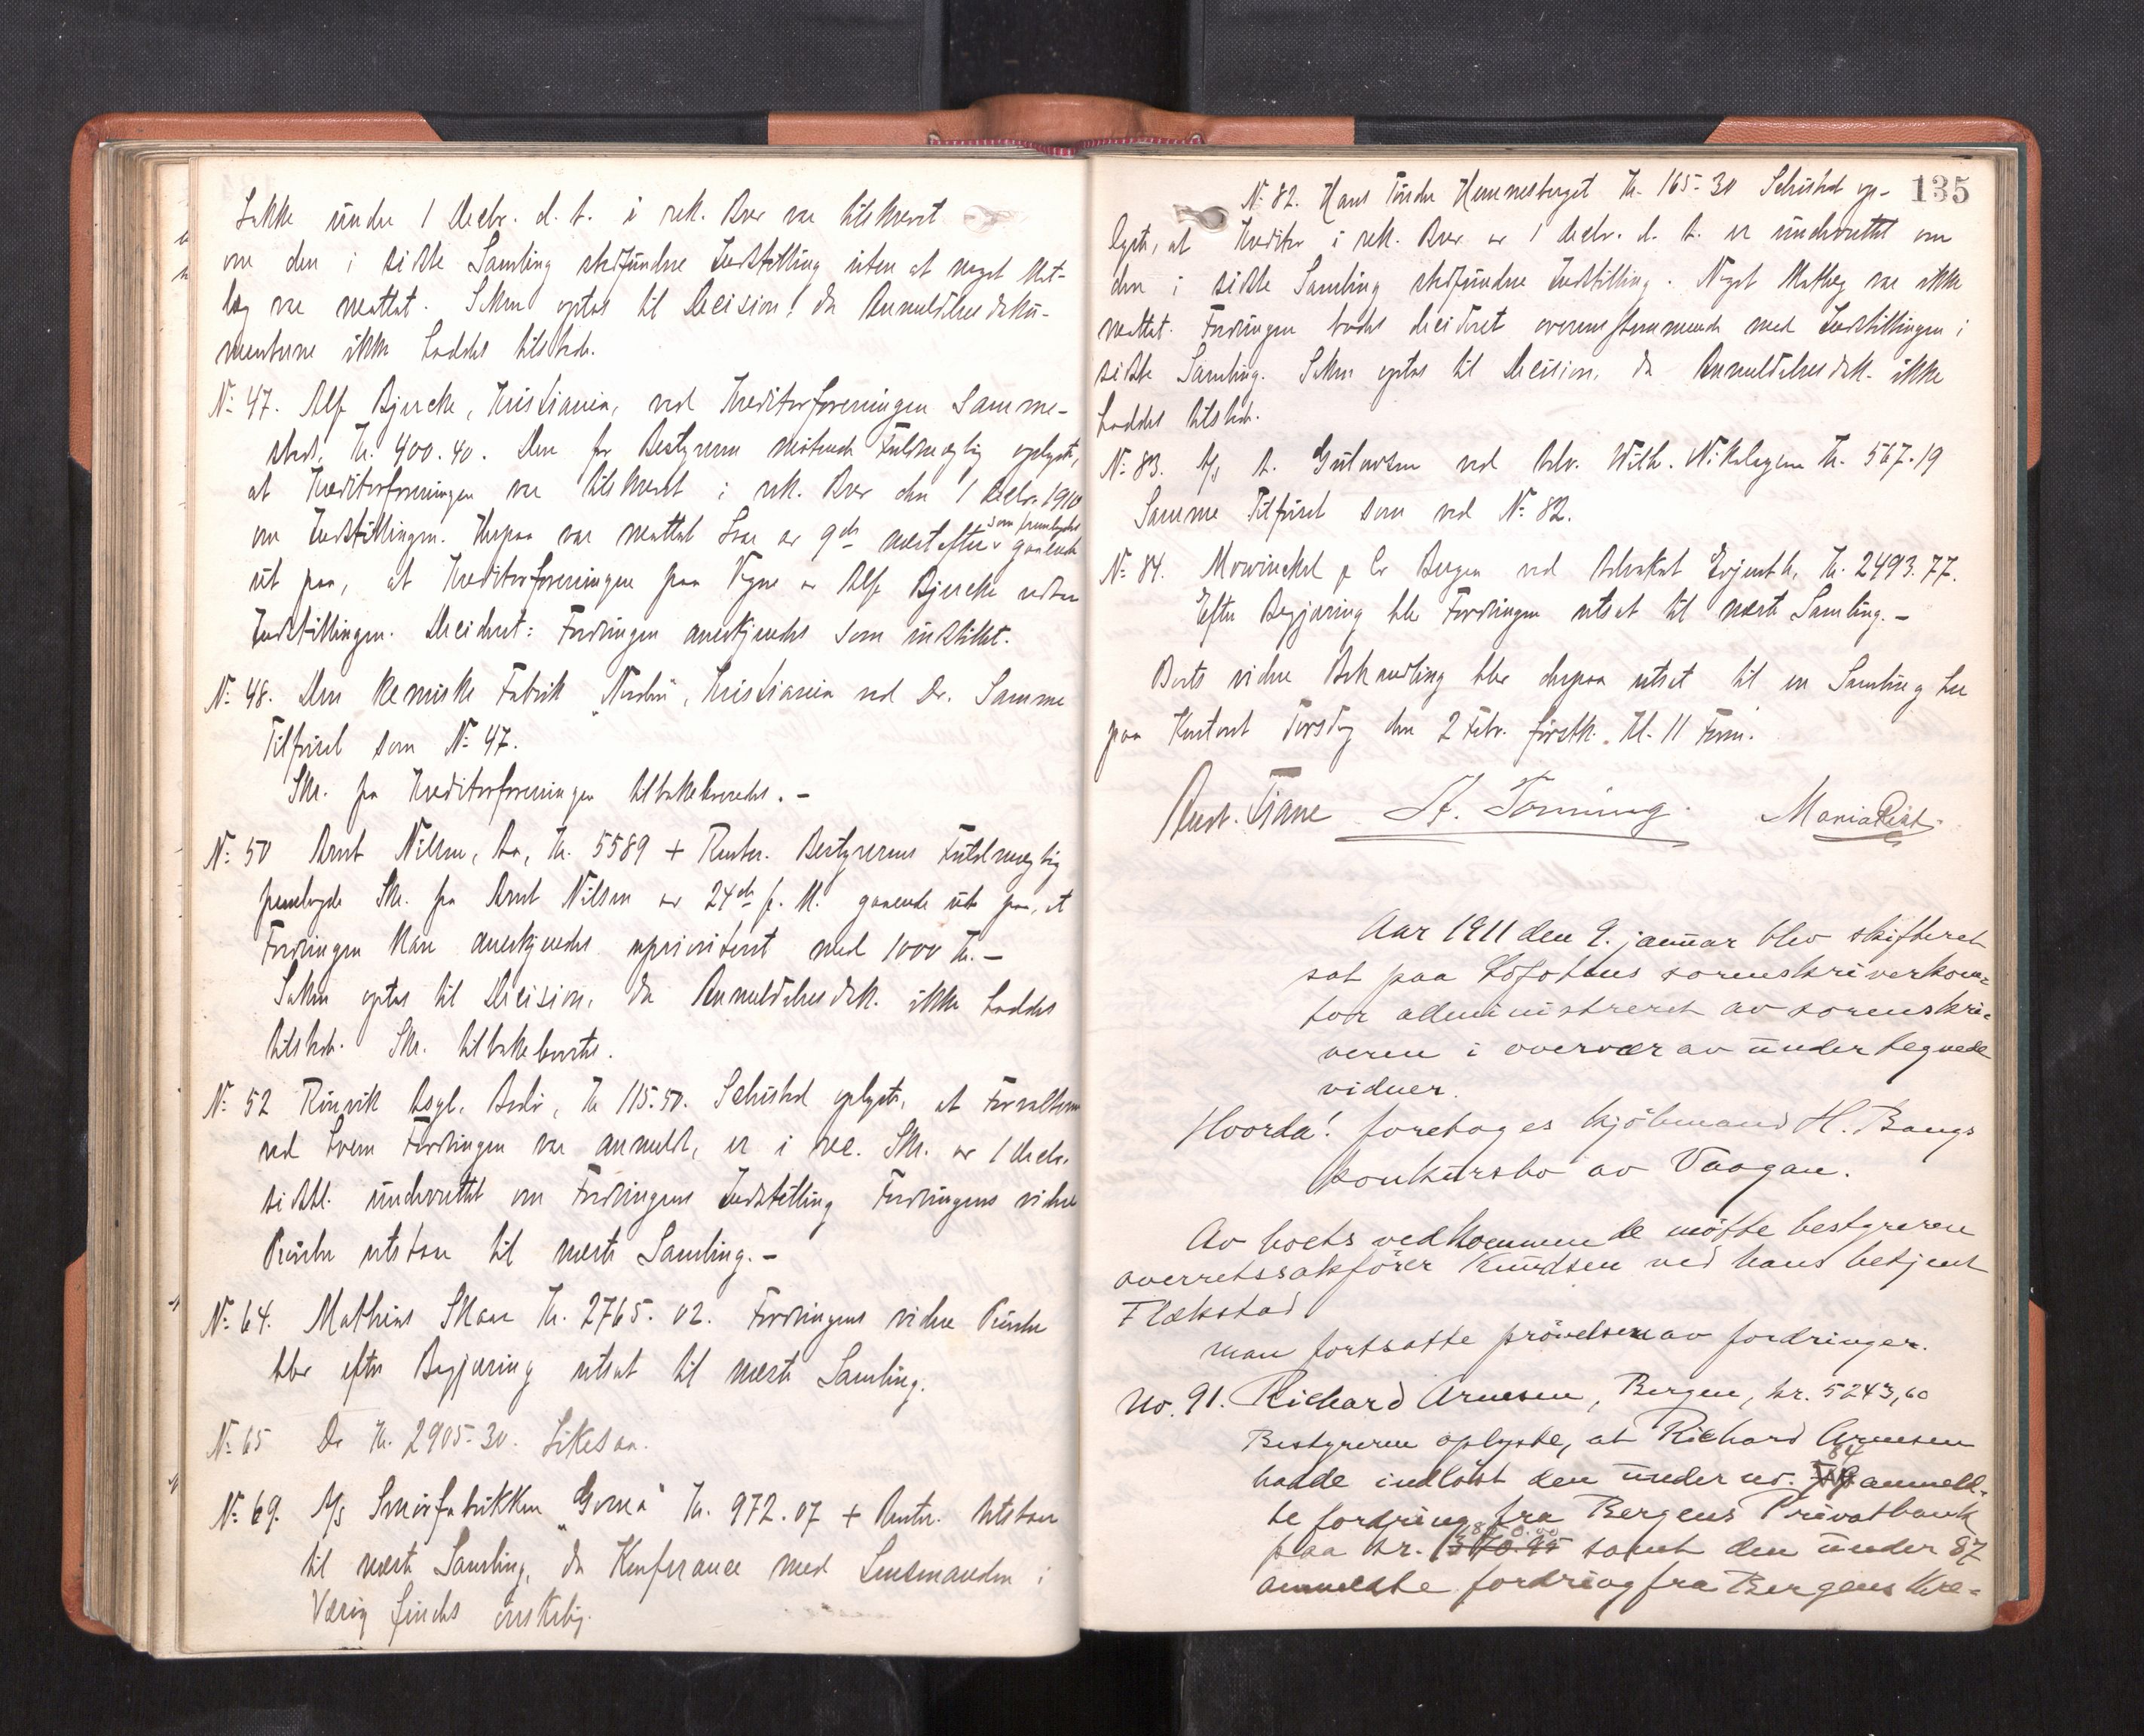 Lakke under 1 Decbr. d. A. i rek. Brev var tilskrevet
om den i sidste Samling stedfundne Indstilling uten at noget Mot-
læg var mottat. Saken optas til Decision, da Anmeldelsesdoku-
menterne ikke haddes tilstede.
No 47. Alf Bjercke, Kristiania, ved Kreditorforeningen Samme-
steds, Kr. 400.40. Den for Bestyreren møtende Fuldmægtig oplyste,
at Kreditorforeningen var tilskrevet i rek. Brev den 1 Decbr. 1910
om Indstillingen. Herpaa var mottat Svar av 9de næstefter som fremlagdes gaaende
ut paa, at Kreditorforeningen paa Vegne av Alf Bjercke vedtar
Indstillingen. Decideret: Fordringen anerkjendes som indstillet.
No 48. Den kemiske Fabrik "Norden", Kristiania ved Do. Samme
Tilførsel som No 47.
Skr. fra Kreditorforeningen tilbakeleveredes. -
No 50 Arnt Nilsen, Kr. 5589 + Renter. Bestyrerens Fuldmægtig
fremlagde Skr. fra Arnt Nilsen av 24de f. M. gaaende ut paa, at
Fordringen kan anerkjendes uprioriteret med 1000 Kr. -
Saken optas til Decision, da Anmeldelsesdok. ikke haddes
tilstede. Skr. tilbakeleverte.
No 52 Rønvik Asyl, Bodø, Kr 115.50. Schisted oplyste, at Forvalteren
ved hvem Fordringen var anmeldt, er i rec. Skr. av 1 Decbr.
sidstl. underrettet om Fordringens Indstilling Fordringens videre
Prøvelse utstaar til næste Samling. -
No 64. Mathias Skaar Kr. 2765.02. Fordringens videre Prøvelse
blev efter Begjæring utsat til næste Samling.
No 65 Do Kr. 2905.30. Likesaa.
No 69. A/S Smørfabrikken "Goma" Kr. 972.07 + Renter. Utstaar
til næste Samling, da Konferance med Lensmanden i
Værøy findes ønskelig.
135
No 82. Hans Tøndre Hemnesberget Kr. 165.30 Schisted op-
lyste, at Kreditor i rek. Brev av 1 Decbr. d. A. er underrettet om
den i sidste Samling stedfundne Indstilling. Noget Motlæg var ikke
mottat. Fordringen blev decideret overensstemmende med Indstillingen i
sidste Samling. Saken optas til Decision, da Anmeldelsesdok. ikke
haddes tilstede.
No 83. A/S A. Gulowsen ved Adv. Wilh. Nikolaysen Kr. 567.19
Samme Tilførsel som ved No 82.
No 84. Mowinckel & Co Bergen ved Advokat Evjenth, Kr. 2493.77.
Efter Begjæring blev Fordringen utsat til næste Samling. -
Boets videre Behandling blev derpaa utsat til en Samling her
paa Kontoret Torsdag den 2 Febr. førstk. Kl. 11 Form.
Aust. Tiane A. Tonning. Maria Rist.
Aar 1911 den 9. januar blev skifteret
sat paa Lofotens sorenskriverkon-
tor administreret av sorenskri-
veren i overvær av undertegnede
vidner.
Hvorda! foretages kjøbmand H. Bangs
konkursbo av Vaagan.
Av boets vedkommende møtte bestyreren
overretssakfører Knudsen ved hans betjent
Flakstad
man fortsatte prøvelsen av fordringer.
No. 91. Richard Arnesen, Bergen, kr. 5243,60
Bestyreren oplyste, at Richard Arnesen
hadde indløst den under no. 84 anmeld-
te fordring fra Bergens Privatbank
paa kr. samt den under 87
anmeldte fordring fra Bergens Kre-